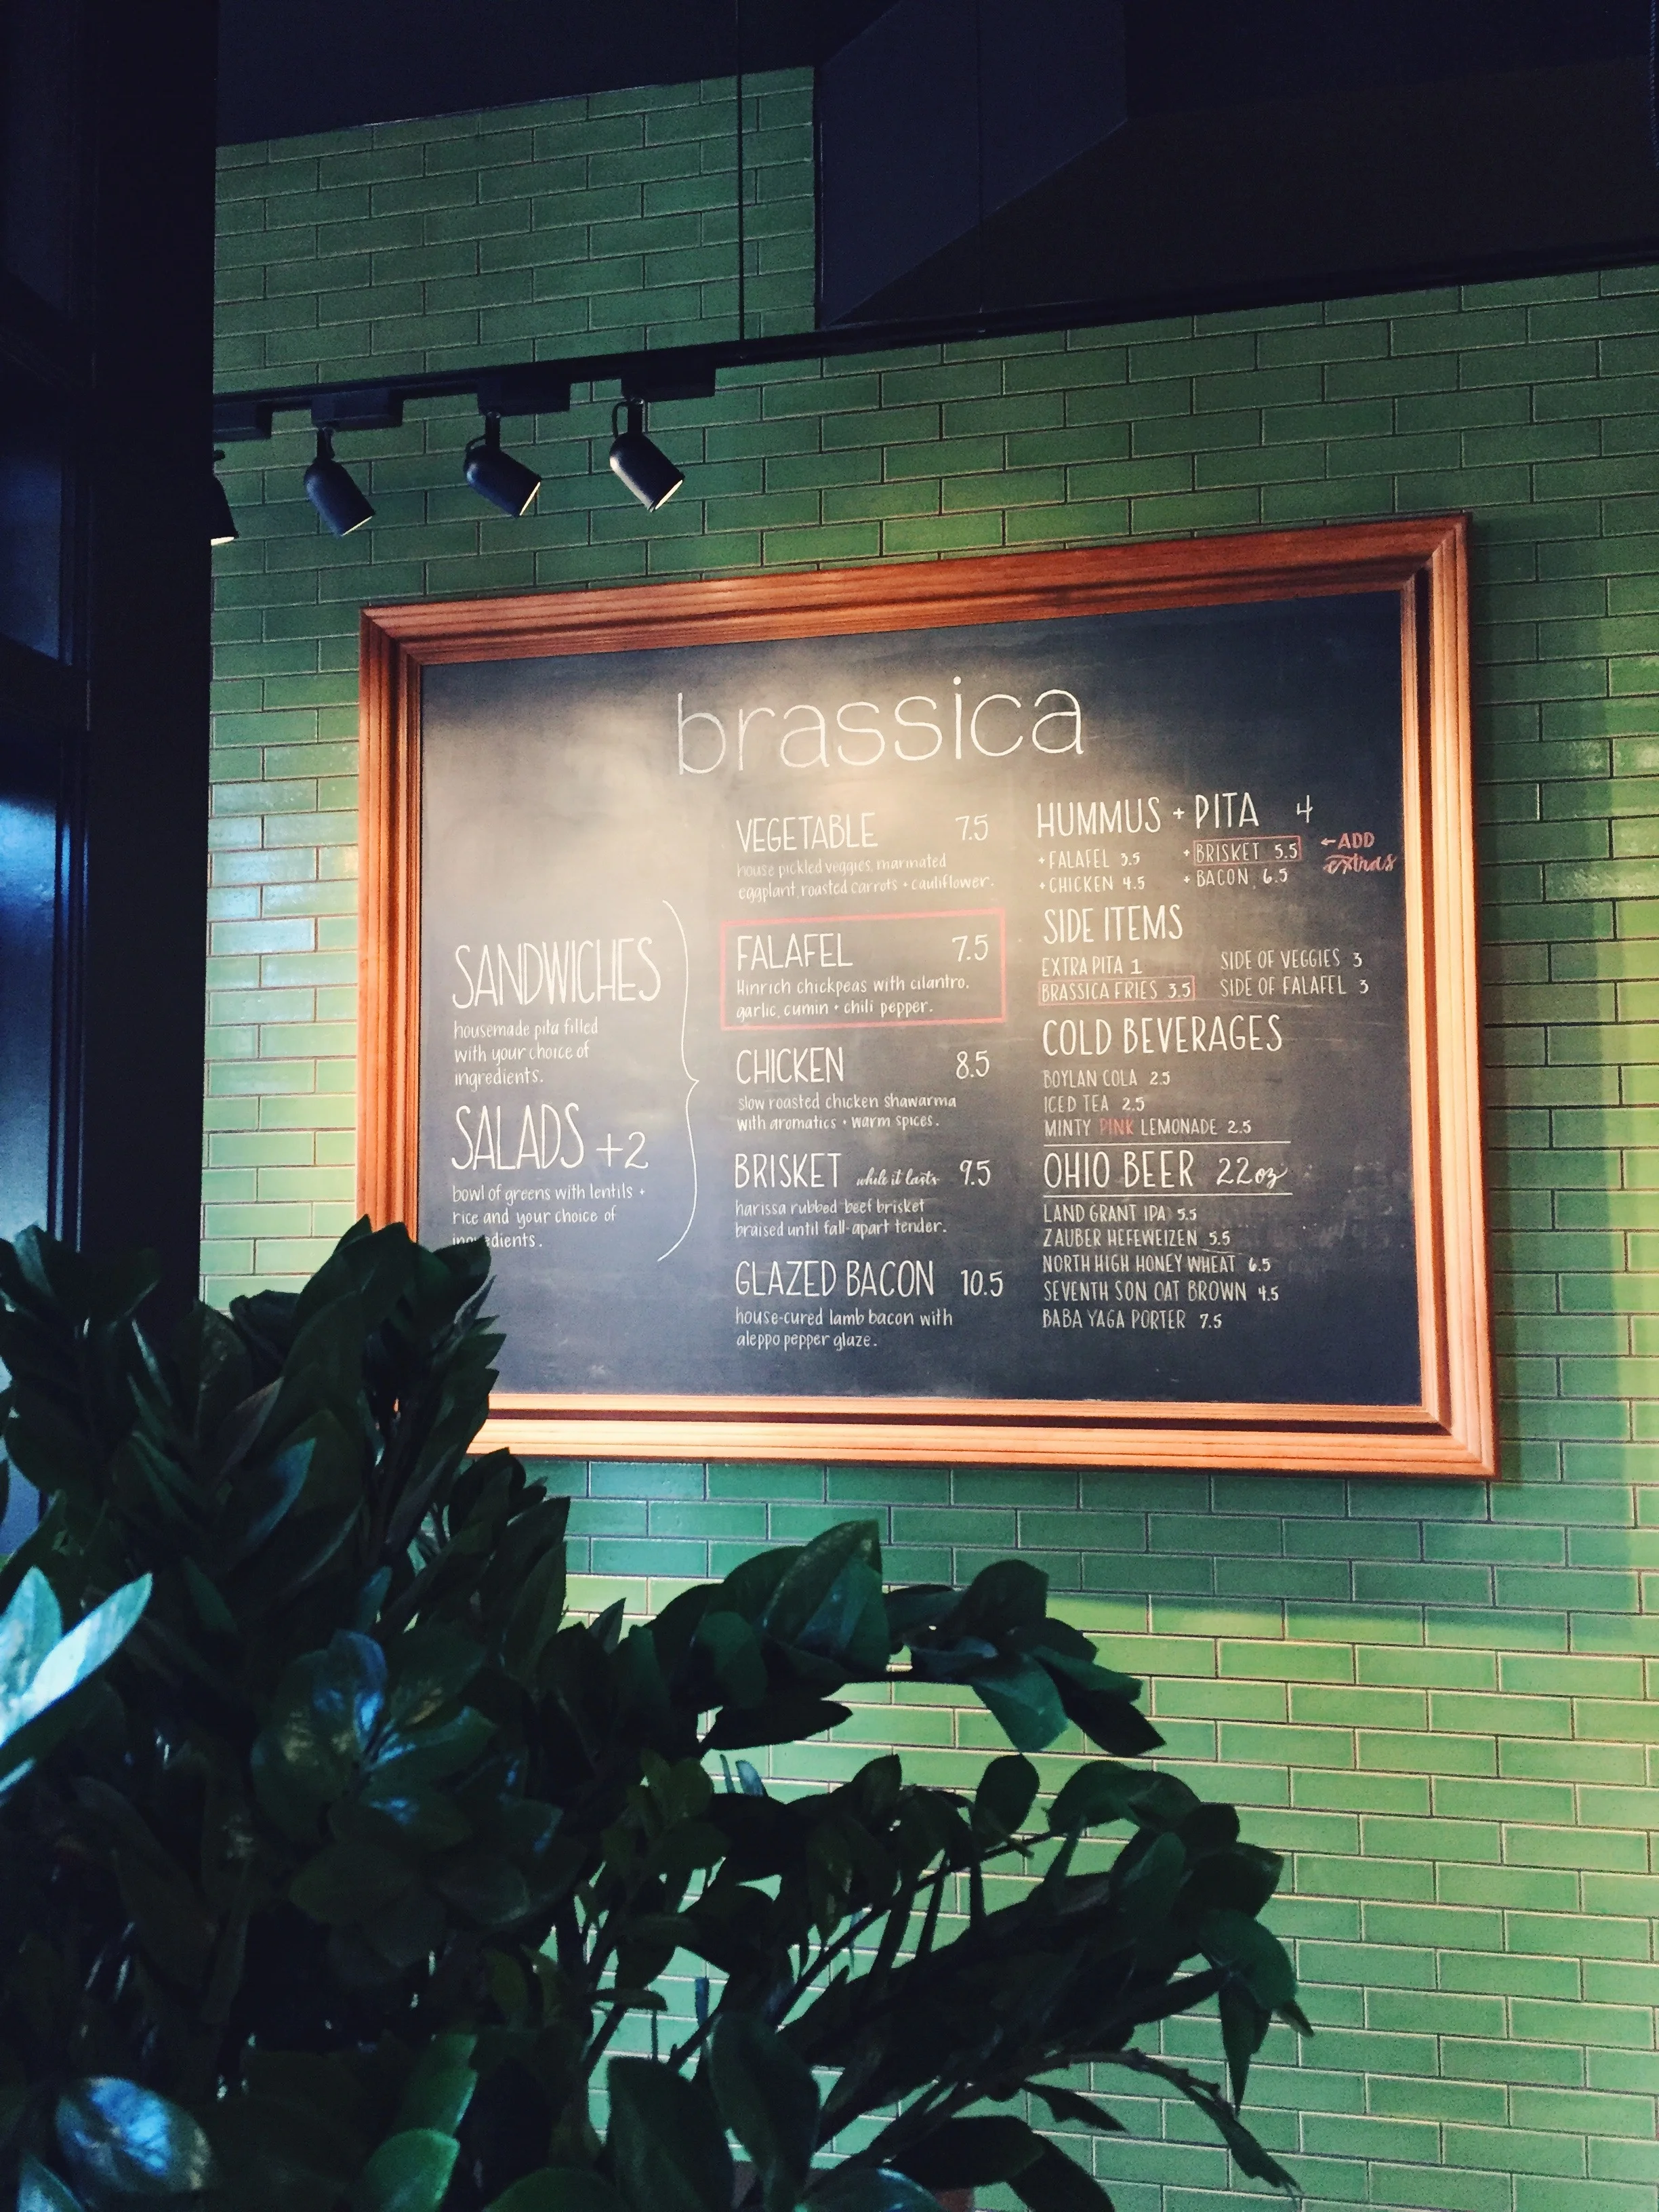 brassica
SANDWICHES
housemade pita filled
with your choice of
ingredients.
SALADS +2
bowl of greens with lentils +
rice and your choice of
ingredients.
VEGETABLE 7.5
house pickled veggies, marinated
eggplant, roasted carrots + cauliflower.
FALAFEL 7.5
Hinrich chickpeas with cilantro,
garlic, cumin + chili pepper.
CHICKEN 8.5
slow roasted chicken shawarma
with aromatics + warm spices.
BRISKET while it lasts 9.5
harissa rubbed beef brisket
braised until fall-apart tender.
GLAZED BACON 10.5
house-cured lamb bacon with
aleppo pepper glaze.
HUMMUS + PITA 4
+ FALAFEL 3.5 + BRISKET 5.5 ←ADD
+ CHICKEN 4.5 + BACON 6.5 extras
SIDE ITEMS
EXTRA PITA 1 SIDE OF VEGGIES 3
BRASSICA FRIES 3.5 SIDE OF FALAFEL 3
COLD BEVERAGES
BOYLAN COLA 2.5
ICED TEA 2.5
MINTY PINK LEMONADE 2.5
OHIO BEER 22oz
LAND GRANT IPA 5.5
ZAUBER HEFEWEIZEN 5.5
NORTH HIGH HONEY WHEAT 6.5
SEVENTH SON OAT BROWN 4.5
BABA YAGA PORTER 7.5